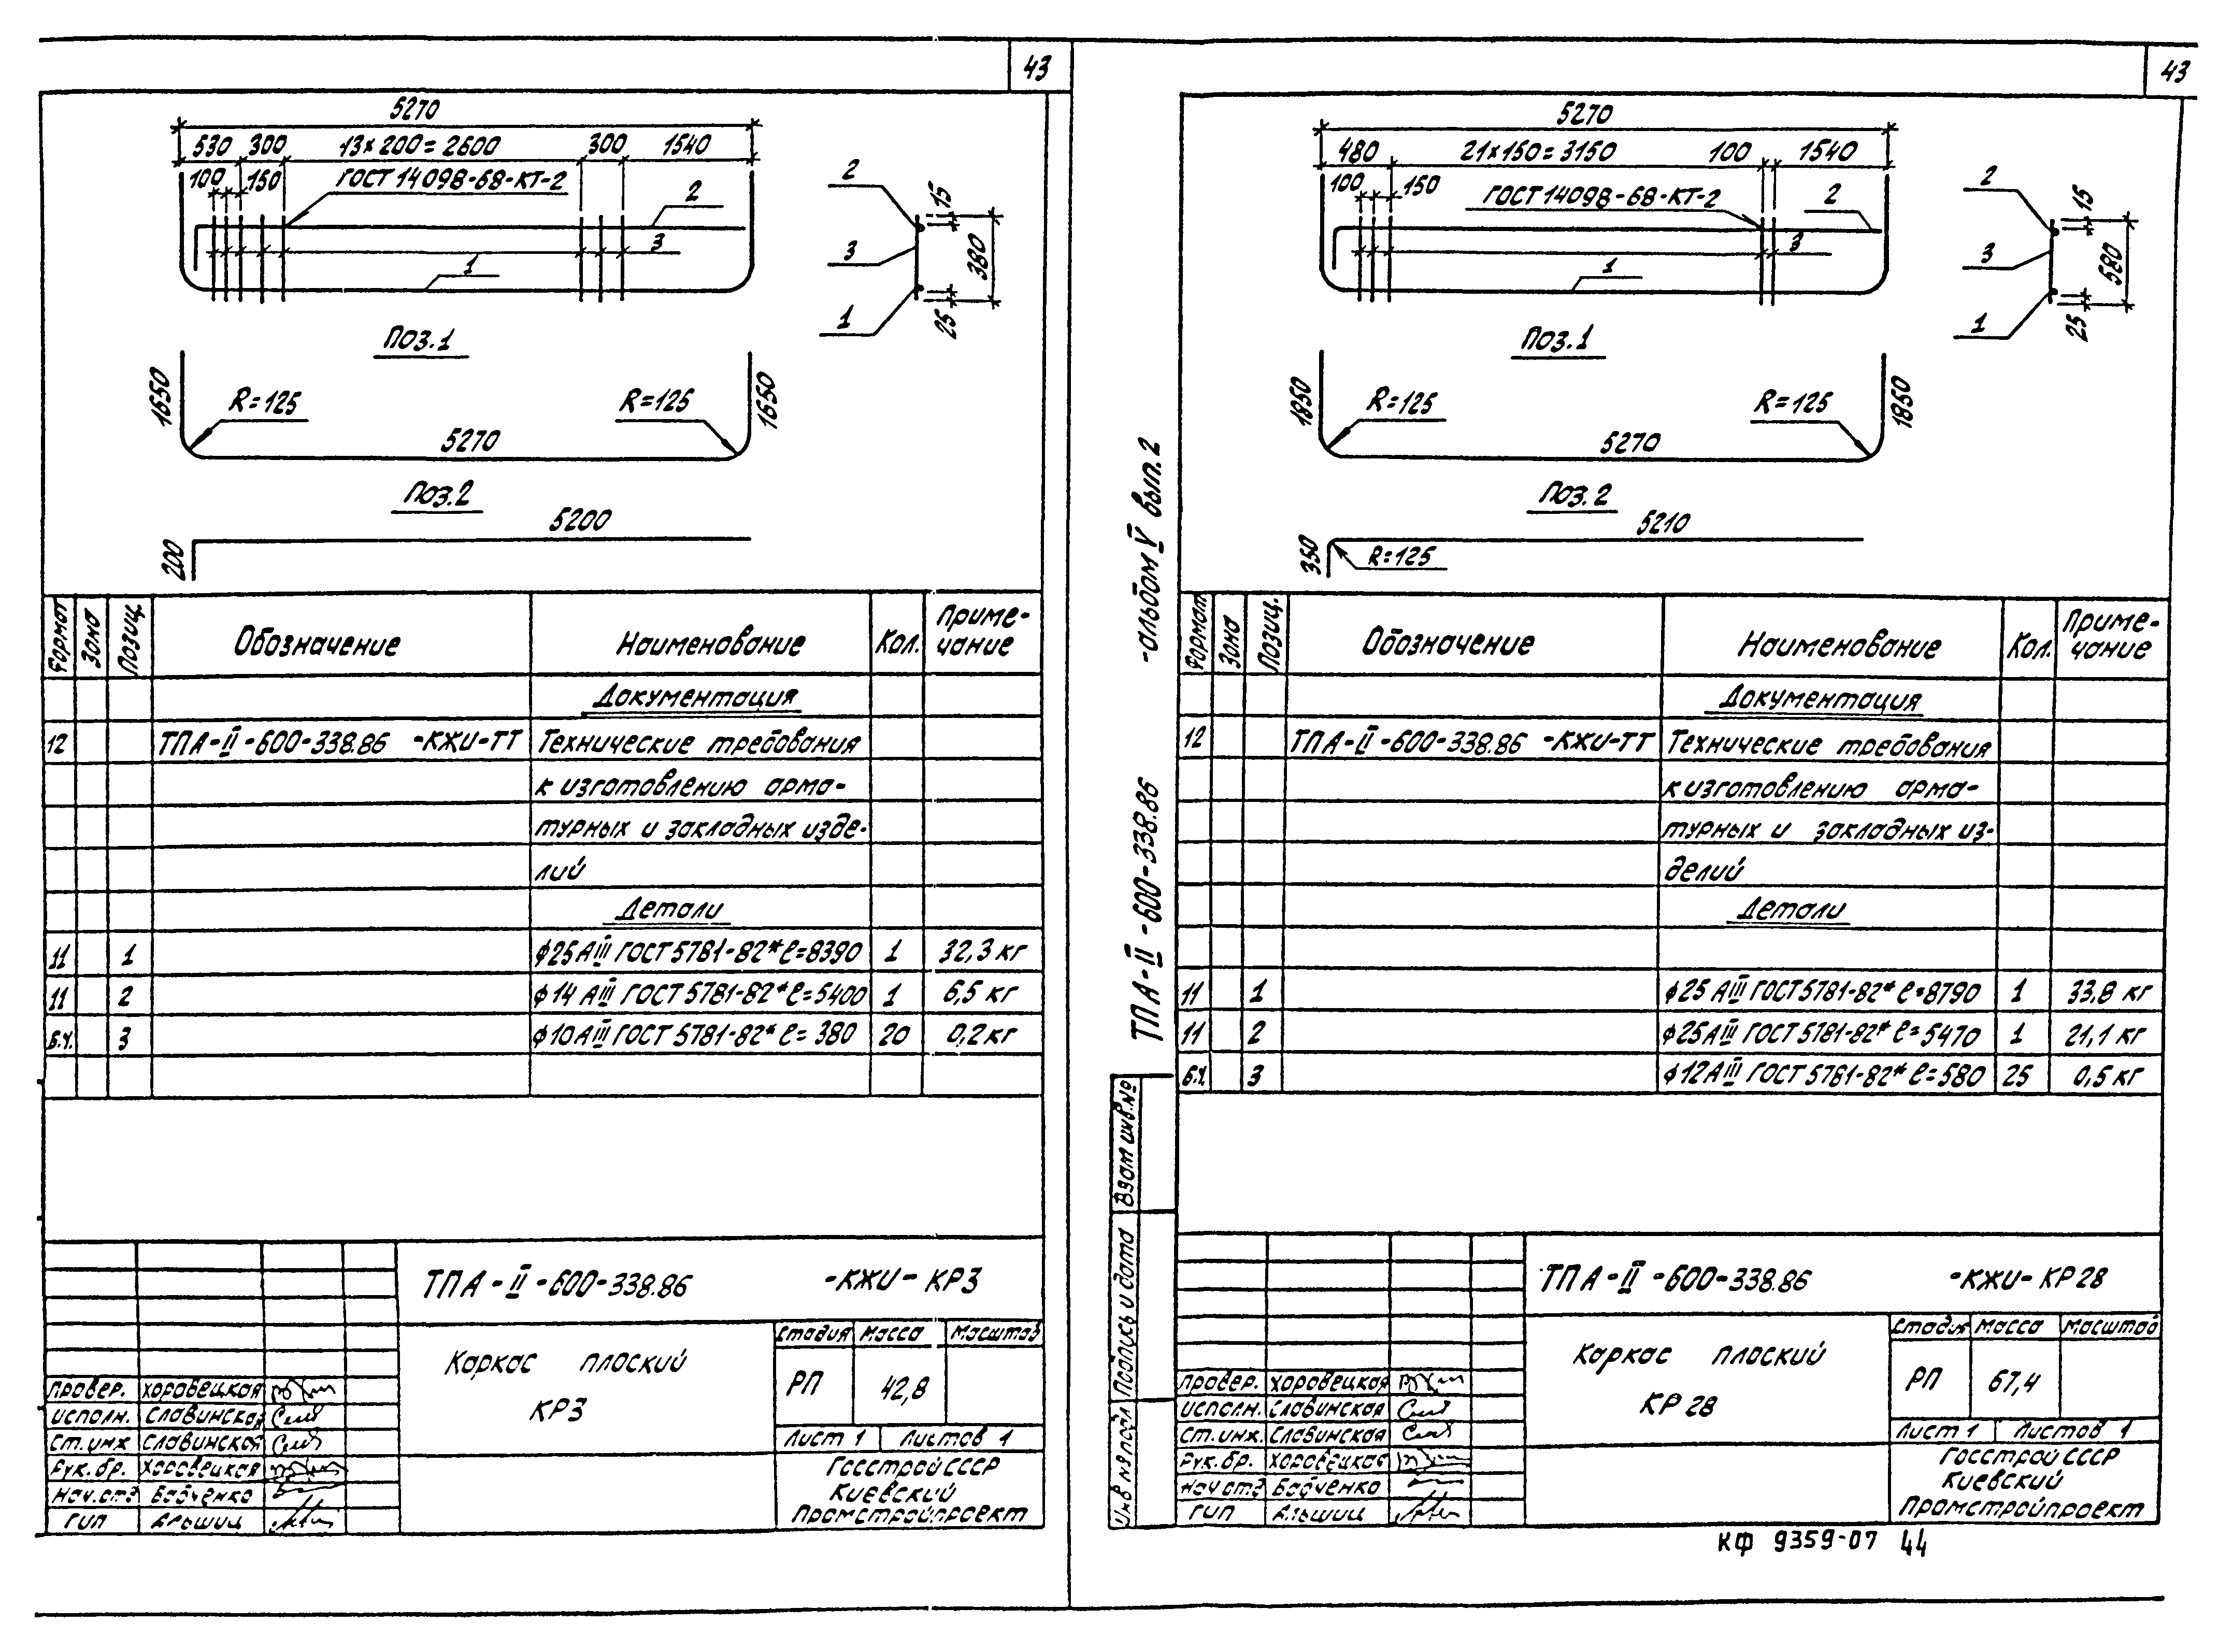 43
5270
530 300 13×200=2600 300 1540
100 150 ГОСТ 14098-68-КТ-2
2
3
1
2
3
1
15
380
25
Поз.1
1650
R=125
R=125
1650
5270
Поз.2
5200
200
Формат Зона Позиц. Обозначение Наименование Кол. Приме-
чание
Документация
12 ТПА-II-600-338.86 -КЖИ-ТТ Технические требования
к изготовлению арма-
турных и закладных изде-
лий
Детали
11 1 ф25АIII ГОСТ 5781-82* ℓ=8390 1 32,3 кг
11 2 ф14 АIII ГОСТ 5781-82* ℓ=5400 1 6,5 кг
б.ч. 3 ф10АIII ГОСТ 5781-82* ℓ= 380 20 0,2 кг
ТПА-II-600-338.86 -КЖИ- КР3
Каркас плоский
КР3
Стадия Масса Масштаб
РП 42,8
Лист 1 Листов 1
Госстрой СССР
Киевский
Промстройпроект
Провер. Хоровецкая
Исполн. Славинская
Ст.инж Славинская
Рук.бр. Хоровецкая
Нач.отд Бабченко
ГИП Альшиц
43
5270
480 21×150=3150 100 1540
100 150
ГОСТ 14098-68-КТ-2
2
3
1
2
3
1
15
580
25
Поз.1
1850
R=125
R=125
1850
5270
Поз.2
5210
350
R=125
ТПА-II-600-338.86 -альбом V вып.2
Формат Зона Позиц. Обозначение Наименование Кол. Приме-
чание
Документация
12 ТПА-II-600-338.86 -КЖИ-ТТ Технические требования
к изготовлению арма-
турных и закладных из-
делий
Детали
11 1 ф25 АIII ГОСТ 5781-82* ℓ=8790 1 33,8 кг
11 2 ф25АIII ГОСТ 5781-82* ℓ=5470 1 21,1 кг
б.ч. 3 ф12АIII ГОСТ 5781-82* ℓ=580 25 0,5 кг
Взам инв.№
Подпись и дата
Инв № подл
ТПА-II-600-338.86 -КЖИ- КР 28
Каркас плоский
КР 28
Стадия Масса Масштаб
РП 67,4
Лист 1 Листов 1
Госстрой СССР
Киевский
Промстройпроект
Провер. Хоровецкая
Исполн. Славинская
Ст.инж. Славинская
Рук.бр. Хоровецкая
Нач отд Бабченко
ГИП Альшиц
КФ 9359-07 44